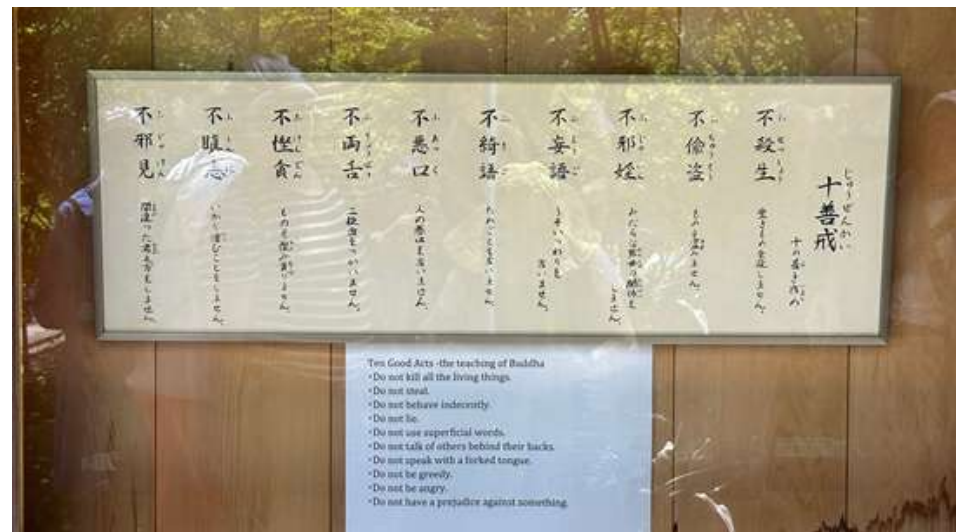 じゅうぜんかい
十善戒
十の善き戒め
不殺生
生きものを殺しません。
不偸盗
ものを盗みません。
不邪婬
みだらな
しません。
不妄語
うそいつわりを
言いません。
不綺語
たわごとを言いません。
不悪口
人の悪口を言いません。
不両舌
二枚舌をつかいません。
不慳貪
ものを
不瞋恚
いかり憎むことをしません。
不邪見
間違った考え方をしません。
Ten Good Acts -the teaching of Buddha
・Do not kill all the living things.
・Do not steal.
・Do not behave indecently.
・Do not lie.
・Do not use superficial words.
・Do not talk of others behind their backs.
・Do not speak with a forked tongue.
・Do not be greedy.
・Do not be angry.
・Do not have a prejudice against something.